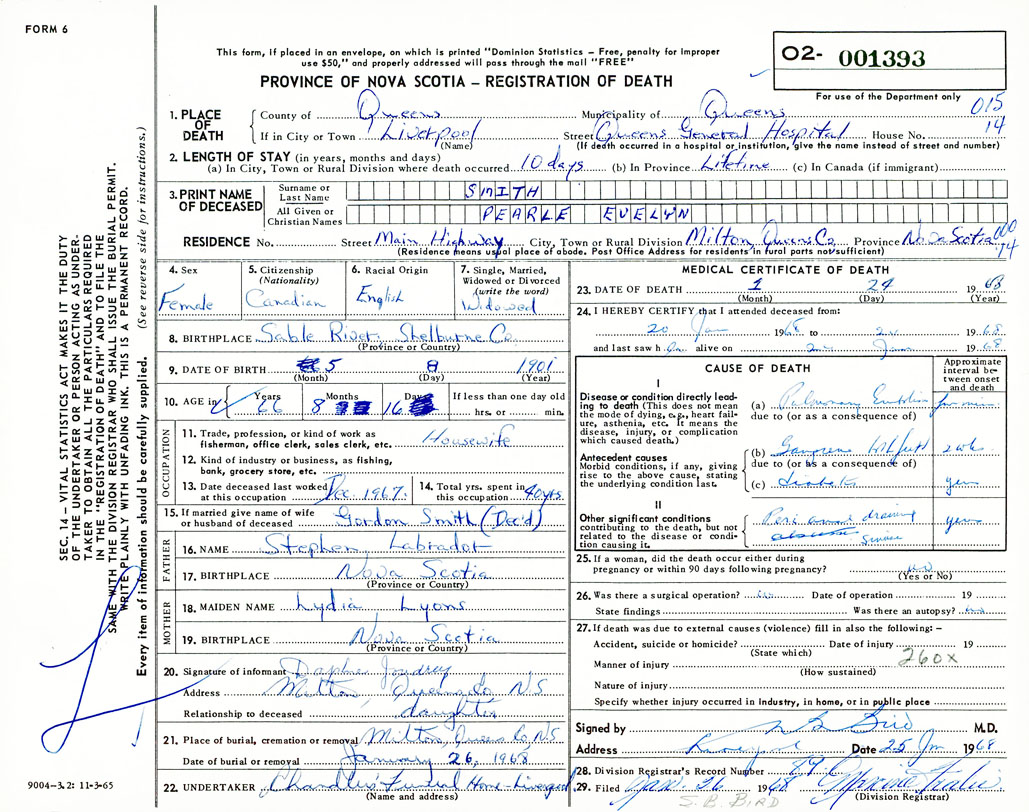 FORM 6
This form, if placed in an envelope, on which is printed "Dominion Statistics – Free, penalty for improper
use $50," and properly addressed will pass through the mail "FREE"
PROVINCE OF NOVA SCOTIA – REGISTRATION OF DEATH
O2- 001393
For use of the Department only
015
14
1. PLACE OF DEATH
County of Queens Municipality of Queens
If in City or Town Liverpool Street Queens General Hospital House No.
(Name) (If death occurred in a hospital or institution, give the name instead of street and number)
2. LENGTH OF STAY (in years, months and days)
(a) In City, Town or Rural Division where death occurred 10 days (b) In Province Lifetime (c) In Canada (if immigrant)
3. PRINT NAME OF DECEASED
Surname or Last Name SMITH
All Given or Christian Names PEARLE EVELYN
RESIDENCE No. Street Main Highway City, Town or Rural Division Milton, Queens Co. Province Nova Scotia
(Residence means usual place of abode. Post Office Address for residents in rural parts not sufficient)
000
14
4. Sex
Female
5. Citizenship (Nationality)
Canadian
6. Racial Origin
English
7. Single, Married, Widowed or Divorced (write the word)
Widowed
8. BIRTHPLACE Sable River Shelburne Co.
(Province or Country)
9. DATE OF BIRTH 5 8 1901
(Month) (Day) (Year)
10. AGE in Years 66 Months 8 Days 16 If less than one day old
hrs. or min.
OCCUPATION
11. Trade, profession, or kind of work as fisherman, office clerk, sales clerk, etc. Housewife
12. Kind of industry or business, as fishing, bank, grocery store, etc.
13. Date deceased last worked at this occupation Dec. 1967.
14. Total yrs. spent in this occupation 40 yrs.
15. If married give name of wife or husband of deceased Gordon Smith (Dec'd)
FATHER
16. NAME Stephen Labrador
17. BIRTHPLACE Nova Scotia
(Province or Country)
MOTHER
18. MAIDEN NAME Lydia Lyons
19. BIRTHPLACE Nova Scotia
(Province or Country)
20. Signature of informant Daphne
Address Milton Queens Co NS
Relationship to deceased daughter
21. Place of burial, cremation or removal Milton, Queens Co, NS
Date of burial or removal January 26, 1968
22. UNDERTAKER Chandlers Funeral Home Liverpool
(Name and address)
MEDICAL CERTIFICATE OF DEATH
23. DATE OF DEATH 1 24 1968
(Month) (Day) (Year)
24. I HEREBY CERTIFY that I attended deceased from:
20 Jan 1968 to 24 1968
and last saw h er alive on 24 Jan 1968
CAUSE OF DEATH
Approximate interval between onset and death
I
Disease or condition directly leading to death (This does not mean the mode of dying, e.g., heart failure, asthenia, etc. It means the disease, injury, or complication which caused death.)
(a) Pulmonary
due to (or as a consequence of)
Antecedent causes
Morbid conditions, if any, giving rise to the above cause, stating the underlying condition last.
(b) Gangrene left foot 2 wks
due to (or as a consequence of)
(c) Diabetes yrs
II
Other significant conditions contributing to the death, but not related to the disease or condition causing it.
draining
sinus
yrs
25. If a woman, did the death occur either during pregnancy or within 90 days following pregnancy? no
(Yes or No)
26. Was there a surgical operation? no Date of operation 19
State findings Was there an autopsy? no
27. If death was due to external causes (violence) fill in also the following: –
Accident, suicide or homicide? Date of injury 19
(State which)
260X
Manner of injury
(How sustained)
Nature of injury
Specify whether injury occurred in industry, in home, or in public place
Signed by Bird M.D.
Address Date 25 Jan 1968
28. Division Registrar's Record Number
29. Filed Jan. 26 1968
(Division Registrar)
S.B. BIRD
SEC. 14 – VITAL STATISTICS ACT MAKES IT THE DUTY
OF THE UNDERTAKER OR PERSON ACTING AS UNDER-
TAKER TO OBTAIN ALL THE PARTICULARS REQUIRED
IN THE "REGISTRATION OF DEATH" AND TO FILE THE
SAME WITH THE DIVISION REGISTRAR WHO SHALL ISSUE THE BURIAL PERMIT.
WRITE PLAINLY WITH UNFADING INK. THIS IS A PERMANENT RECORD.
Every item of information should be carefully supplied. (See reverse side for instructions.)
9004-3.2: 11-3-65